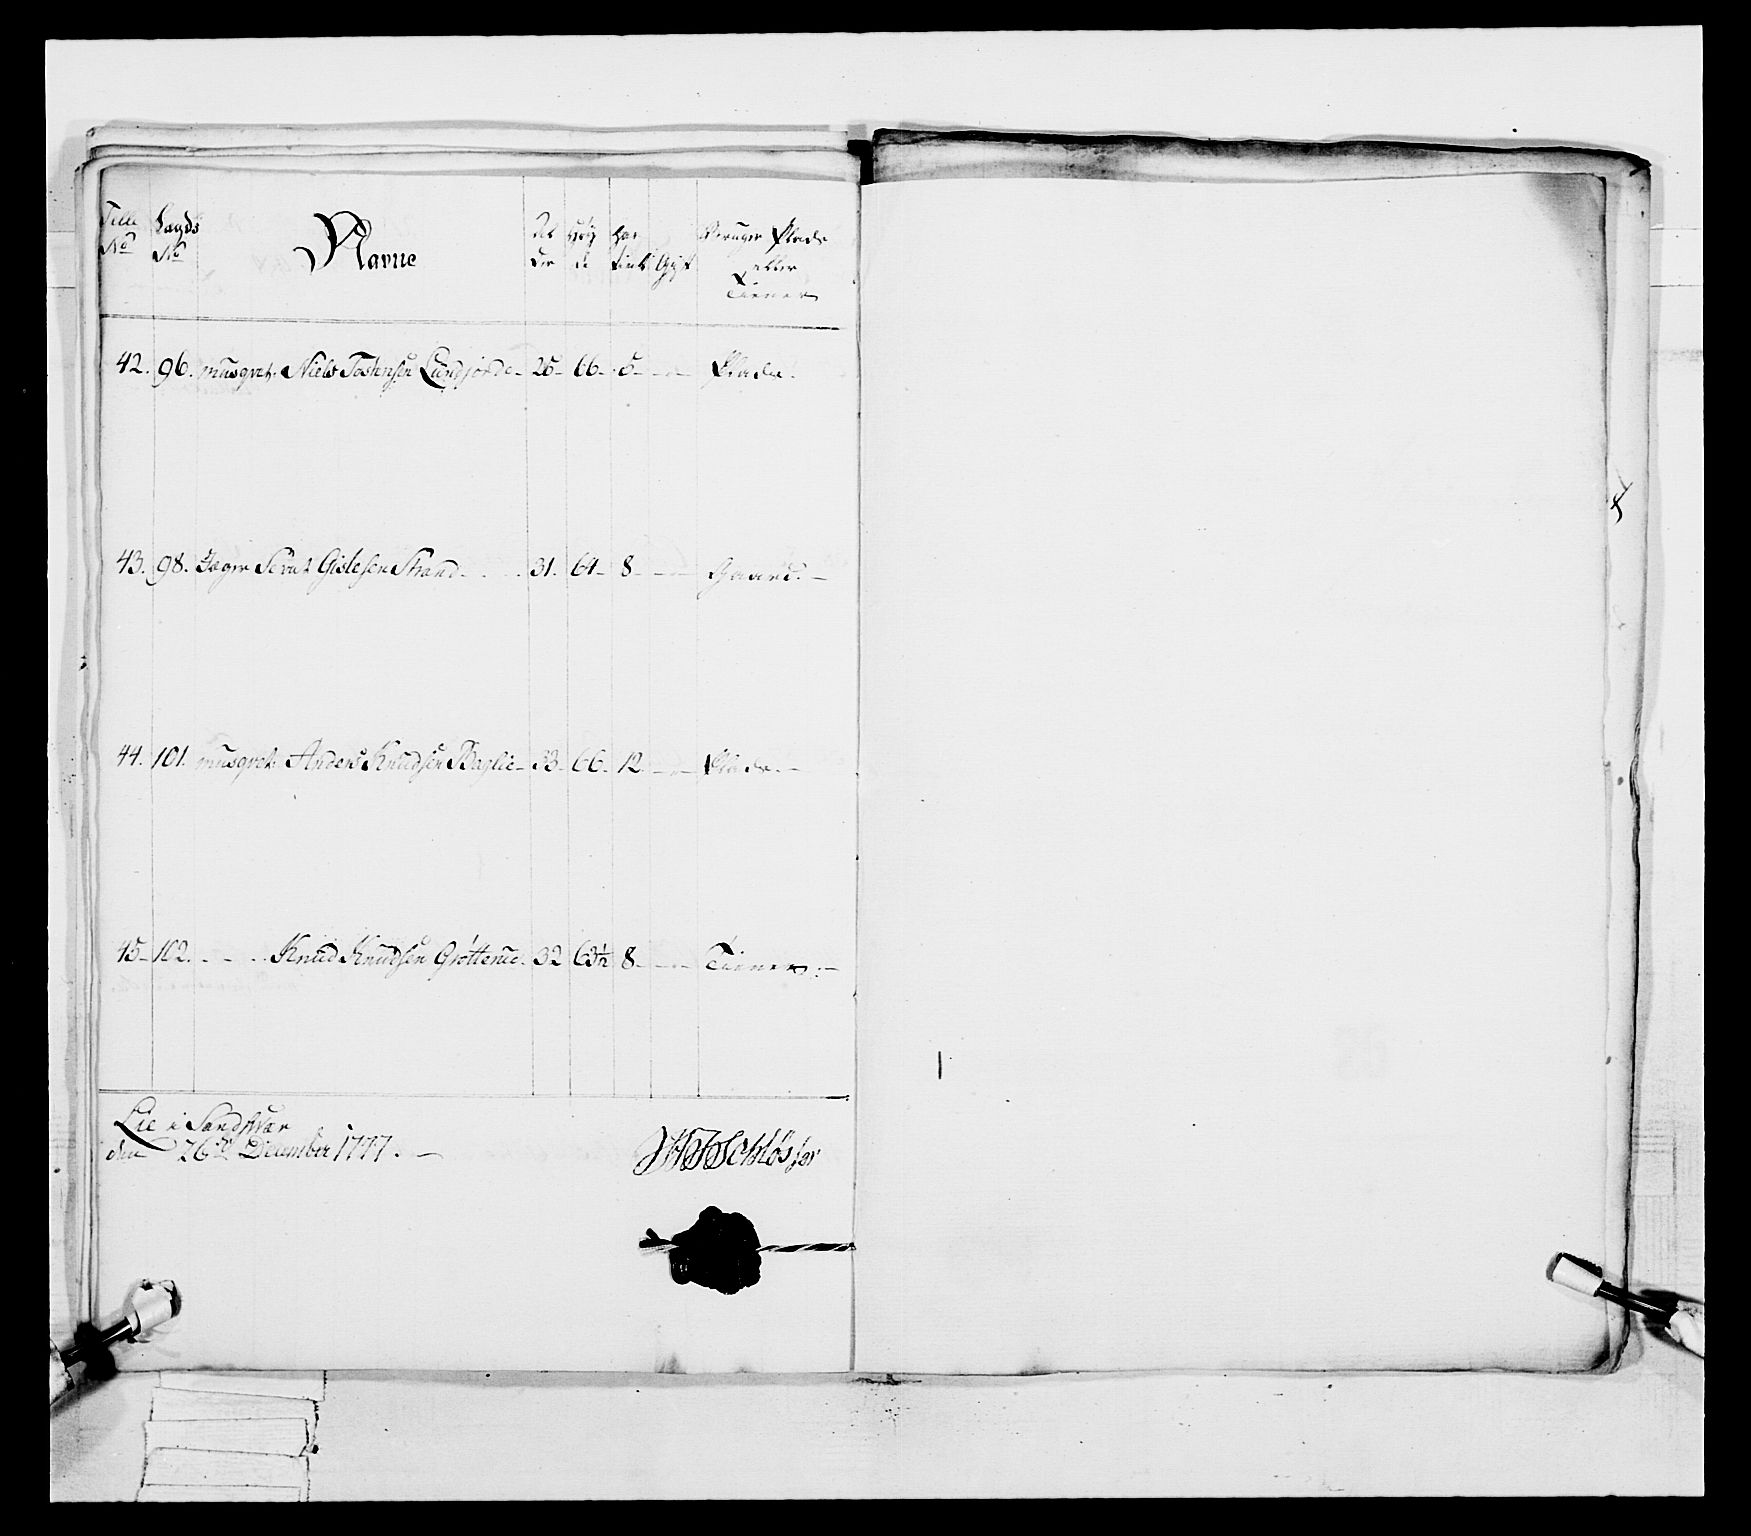 Telle No Lægds No Navne Al der Höy de Har tient Gift Bruger Plads eller Tiener
42. 96. musqvet. Niels Tostensen Lundjorde - 25 - 66 - 5 - - Plads.
43. 98. Jæger Gislesen Strand - 31. 64 - 8 - - Gaard. -
44. 101. musqvet. Anders Knudsen Baglie - 33 - 66 - 12 - - Plads. -
45 - 102. - - - Knud Knudsen Grötterud. 32 63½ 8 - - Tiener. -
Lie i Sandsvær
den 26de December 1777. -
Schlösser